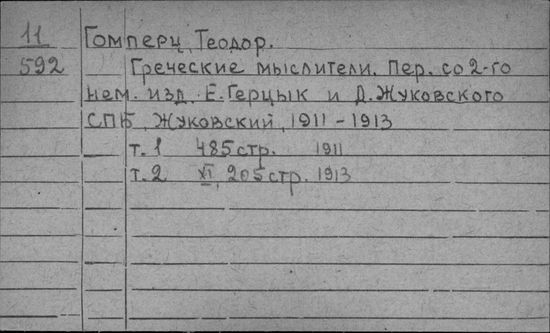 11
592
Гомперц, Теодор.
Греческие мыслители. Пер. со 2-го
нем. изд. Е. Герцык и Д. Жуковского
СПБ, Жуковский, 1911 - 1913
т. 1 485 стр. 1911
т. 2 XI, 205 стр. 1913